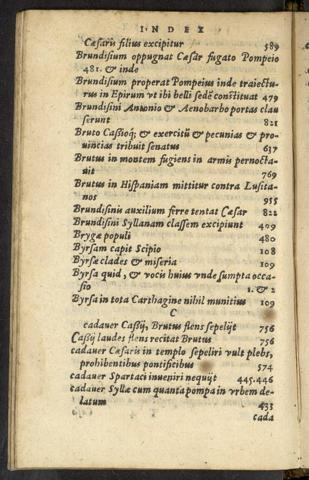 INDEX
Cæsaris filius excipitur 589
Brundisium oppugnat Cæsar fugato Pompeio
481. & inde
Brundisium properat Pompeius inde traiectu-
rus in Epirum vt ibi belli sedē cōstituat 479
Brundisini Antonio & Aenobarbo portas clau
serunt 821
Bruto Cassioq; & exercitū & pecunias & pro-
uincias tribuit senatus 637
Brutus in montem fugiens in armis pernocta-
uit 769
Brutus in Hispaniam mittitur contra Lusita-
nos 955
Brundisinis auxilium ferre tentat Cæsar 822
Brundisini Syllanam classem excipiunt 409
Brygæ populi 480
Byrsam capit Scipio 108
Byrsæ clades & miseria 109
Byrsa quid, & vocis huius vnde sumpta occa-
sio 1. & 2
Byrsa in tota Carthagine nihil munitius 109
C
cadauer Cassij, Brutus flens sepelijt 756
Cassij laudes flens recitat Brutus 756
cadauer Cæsaris in templo sepeliri vult plebs,
prohibentibus pontificibus 574
cadauer Spartaci inueniri nequijt 445.446
cadauer Syllæ cum quanta pompa in vrbem de-
latum 433
cada